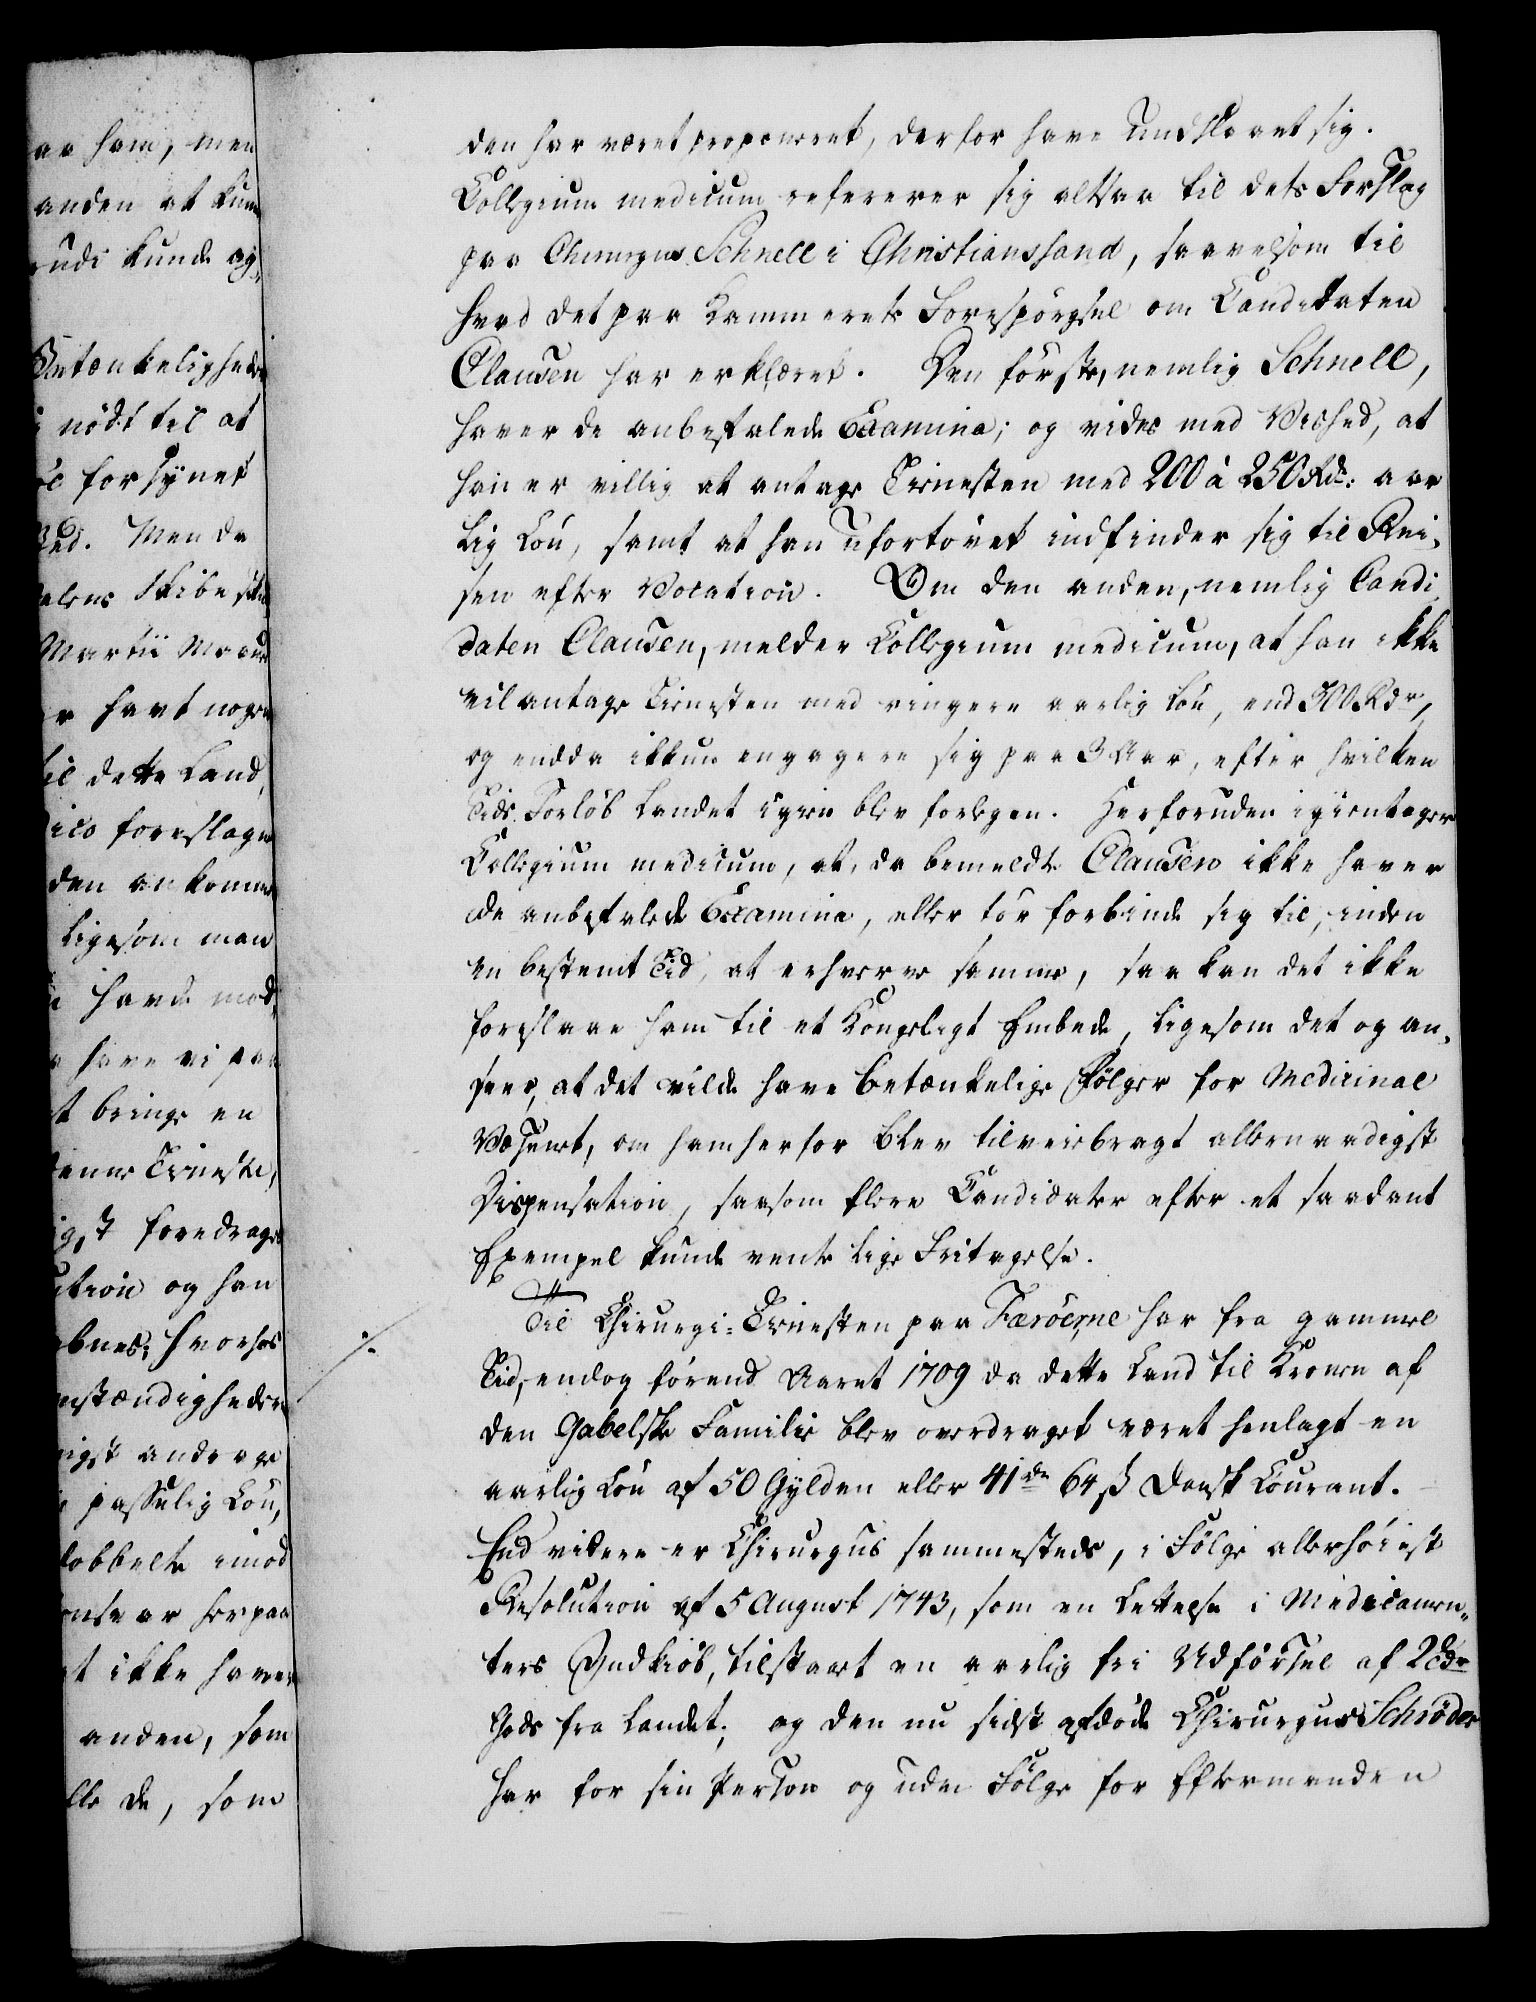 aa ham, men
anden at kun
endi kunde og,
Betænkelighede
nödt til at
forsynet
Men da
Skibe
Martii Maan
havt noge
til dette Land,
foreslagn
den ankomm
ligesom man
havde mod,
have vi paa
bringe en
Tieneste,
foredrage
og han
hvorhos
omstændigheder
andrage
passelig Lön,
dobbelte imod
herpaa
ikke haver
anden, som
de, som
den har været proponeret, derfor have undslaaet sig.
Collegium medicum refererer sig altsaa til dets Forslag
paa Chirurgus Schnell i Christianssand, saavelsom til
hvad det paa Kammerets Forespörgsel om Candidaten
Clausen har erklæret. Den förste, nemlig Schnell,
haver de anbefalede Examina; og vides med Vished, at
han er villig at antage Tienesten med 200 à 250 Rdr: aar
lig Lön, samt at han ufortövet indfinder sig til Rei,
sen efter Vocation. Om den anden, nemlig Candi,
daten Clausen, melder Collegium medicum, at han ikke
vil antage Tienesten med ringere aarlig Lön, end 300 Rdr,
og endda ikkun engagere sig paa 3 Aar, efter hvilken
Tids Forlöb Landet igien blev forlegen. Herforuden igientager
Collegium medicum, at, da bemeldte Clausen ikke haver
de anbefalede Examina, eller tör forbinde sig til, inden
en bestemt Tid, at erhverve samme, saa kan det ikke
foreslaae ham til et Kongeligt Embede, ligesom det og an,
seer, at det vilde have betænkelige Fölger for Medicinal
Væsenet, om ham herfor blev tilveiebragt allernaadigst
Dispensation, saasom flere Candidater efter et saadant
Exempel kunde vente lige Fritagelse.
Til Chirurgi-Tienesten paa Færöerne har fra gammel
Tid, endog förend Aaret 1709 da dette Land til Kronen af
den Gabelske Familie blev overdraget været henlagt en
aarlig Lön af 50 Gylden eller 41 dr 64 ß Dansk Courant.
End videre er Chirurgus sammesteds, i Fölge allerhöiest
Resolution af 5 August 1743, som en Lettelse i Medicamen,
ters Indkiöb, tilstaaet en aarlig fri Udförsel af 2 cdr
Gods fra Landet; og den nu sidst afdöde Chirurgus Schröder
har for sin Person og uden Fölge for Eftermanden